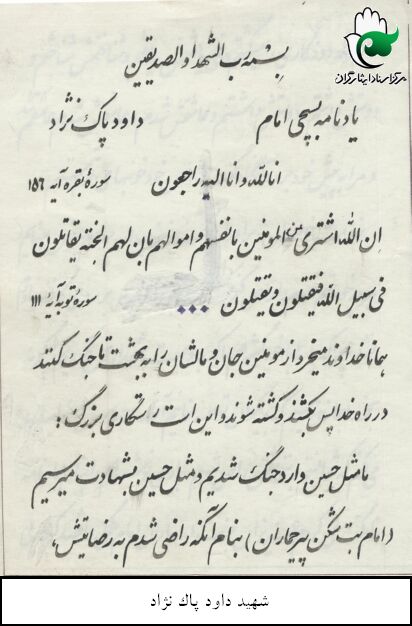 مرکز اسناد ایثارگران
بِسمه رب الشهداء و الصدیقین
یادنامه بسیجی امام داود پاک نژاد
انا لله و انا الیه راجعون سورهٔ بقره آیه ۱۵۶
اِن الله اشتری من المومنین بانفسهم و اموالهم بان لهم الجنته یقاتلون
فی سبیل الله فیقتلون و یقتلون ... سورهٔ توبه آیهٔ ۱۱۱
همانا خداوند میخرد از مومنین جان و مالشان را به بهشت تا جنگ کنند
در راه خدا پس بکشند و کشته شوند و این است رستگاری بزرگ :
ما مثل حسین وارد جنگ شدیم و مثل حسین بشهادت میرسیم
(امام بت شکن پیر جماران) بنام آنکه راضی شدم به رضایتش،
شهید داود پاك نژاد